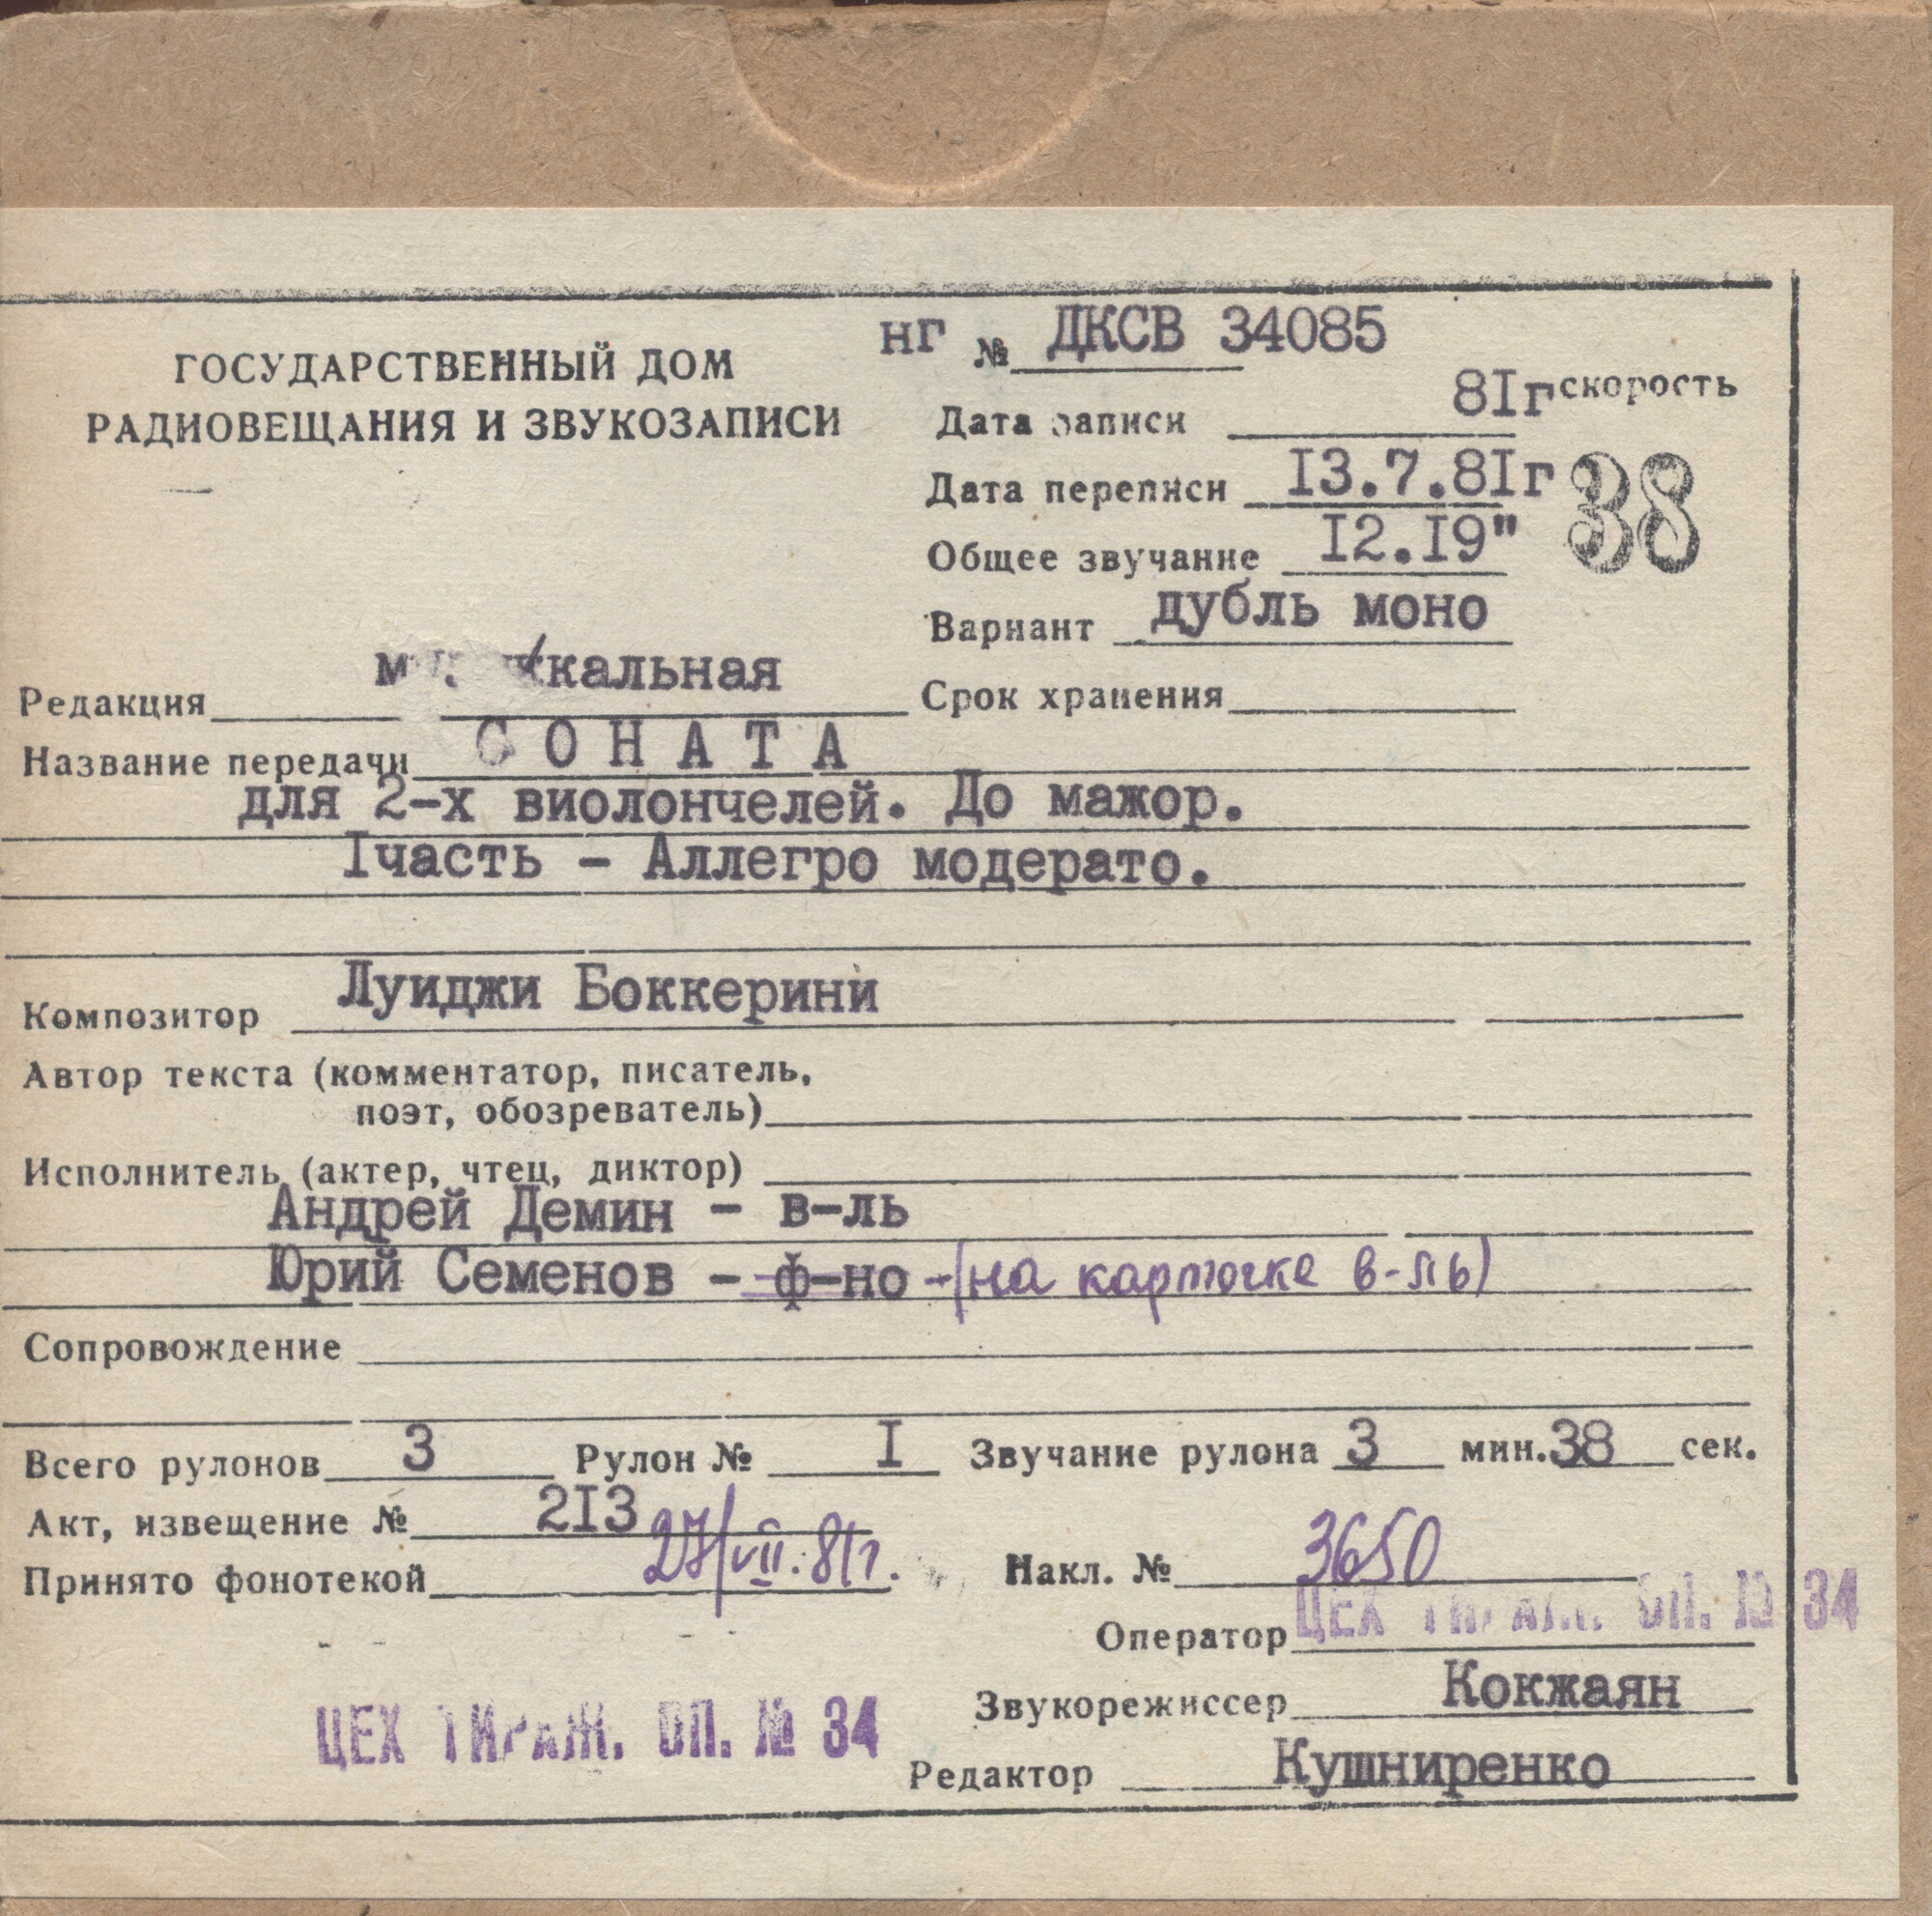 нг № ДКСВ 34085
ГОСУДАРСТВЕННЫЙ ДОМ
РАДИОВЕЩАНИЯ И ЗВУКОЗАПИСИ
Дата записи 8Iг скорость
Дата переписи I3.7.8Iг 38
Общее звучание I2.I9"
Вариант дубль моно
Редакция музыкальная Срок хранения
Название передачи СОНАТА
для 2-х виолончелей. До мажор.
Iчасть - Аллегро модерато.
Композитор Луиджи Боккерини
Автор текста (комментатор, писатель,
поэт, обозреватель)
Исполнитель (актер, чтец, диктор)
Андрей Демин - в-ль
Юрий Семенов - ф-но - (на карточке в-ль)
Сопровождение
Всего рулонов 3 Рулон № I Звучание рулона 3 мин. 38 сек.
Акт, извещение № 2I3
Принято фонотекой 27/VII.81г. Накл. № 3650
Оператор ЦЕХ ТИРАЖ. ОП. № 34
Звукорежиссер Кокжаян
ЦЕХ ТИРАЖ. ОП. № 34
Редактор Кушниренко